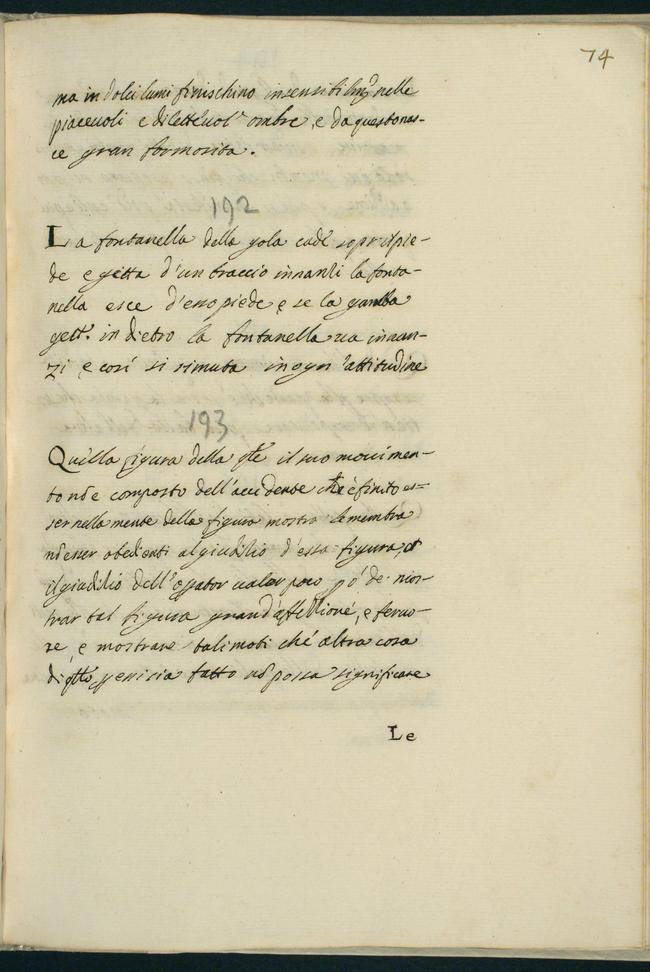 74
ma in dolci lumi finischino insensibilmte nelle
piaceuoli e diletteuol' ombre, e da questo nas-
ce gran formosita.
192
La fontanella della gola cade sopr'il pie-
de e getta d'un braccio innanzi la fonta-
nella esce d'esso piede e se la gamba
gett. in dietro la fontanella ua innan-
zi e cosi si rimuta in ogni attitudine
193
Quella figura della qle il suo mouimen-
to nõ e composto dell'accidente che è finito es-
ser nella mente della figura mostra le membra
nõ esser obedienti al giudilio d'essa figura, et
il giudilio dell'opator ualer poco pò de mos-
trar tal figura grand'affettione, e feruo-
re, e mostrare tali moti che altra cosa
di qllo p che sia fatto nõ possa significare
Le